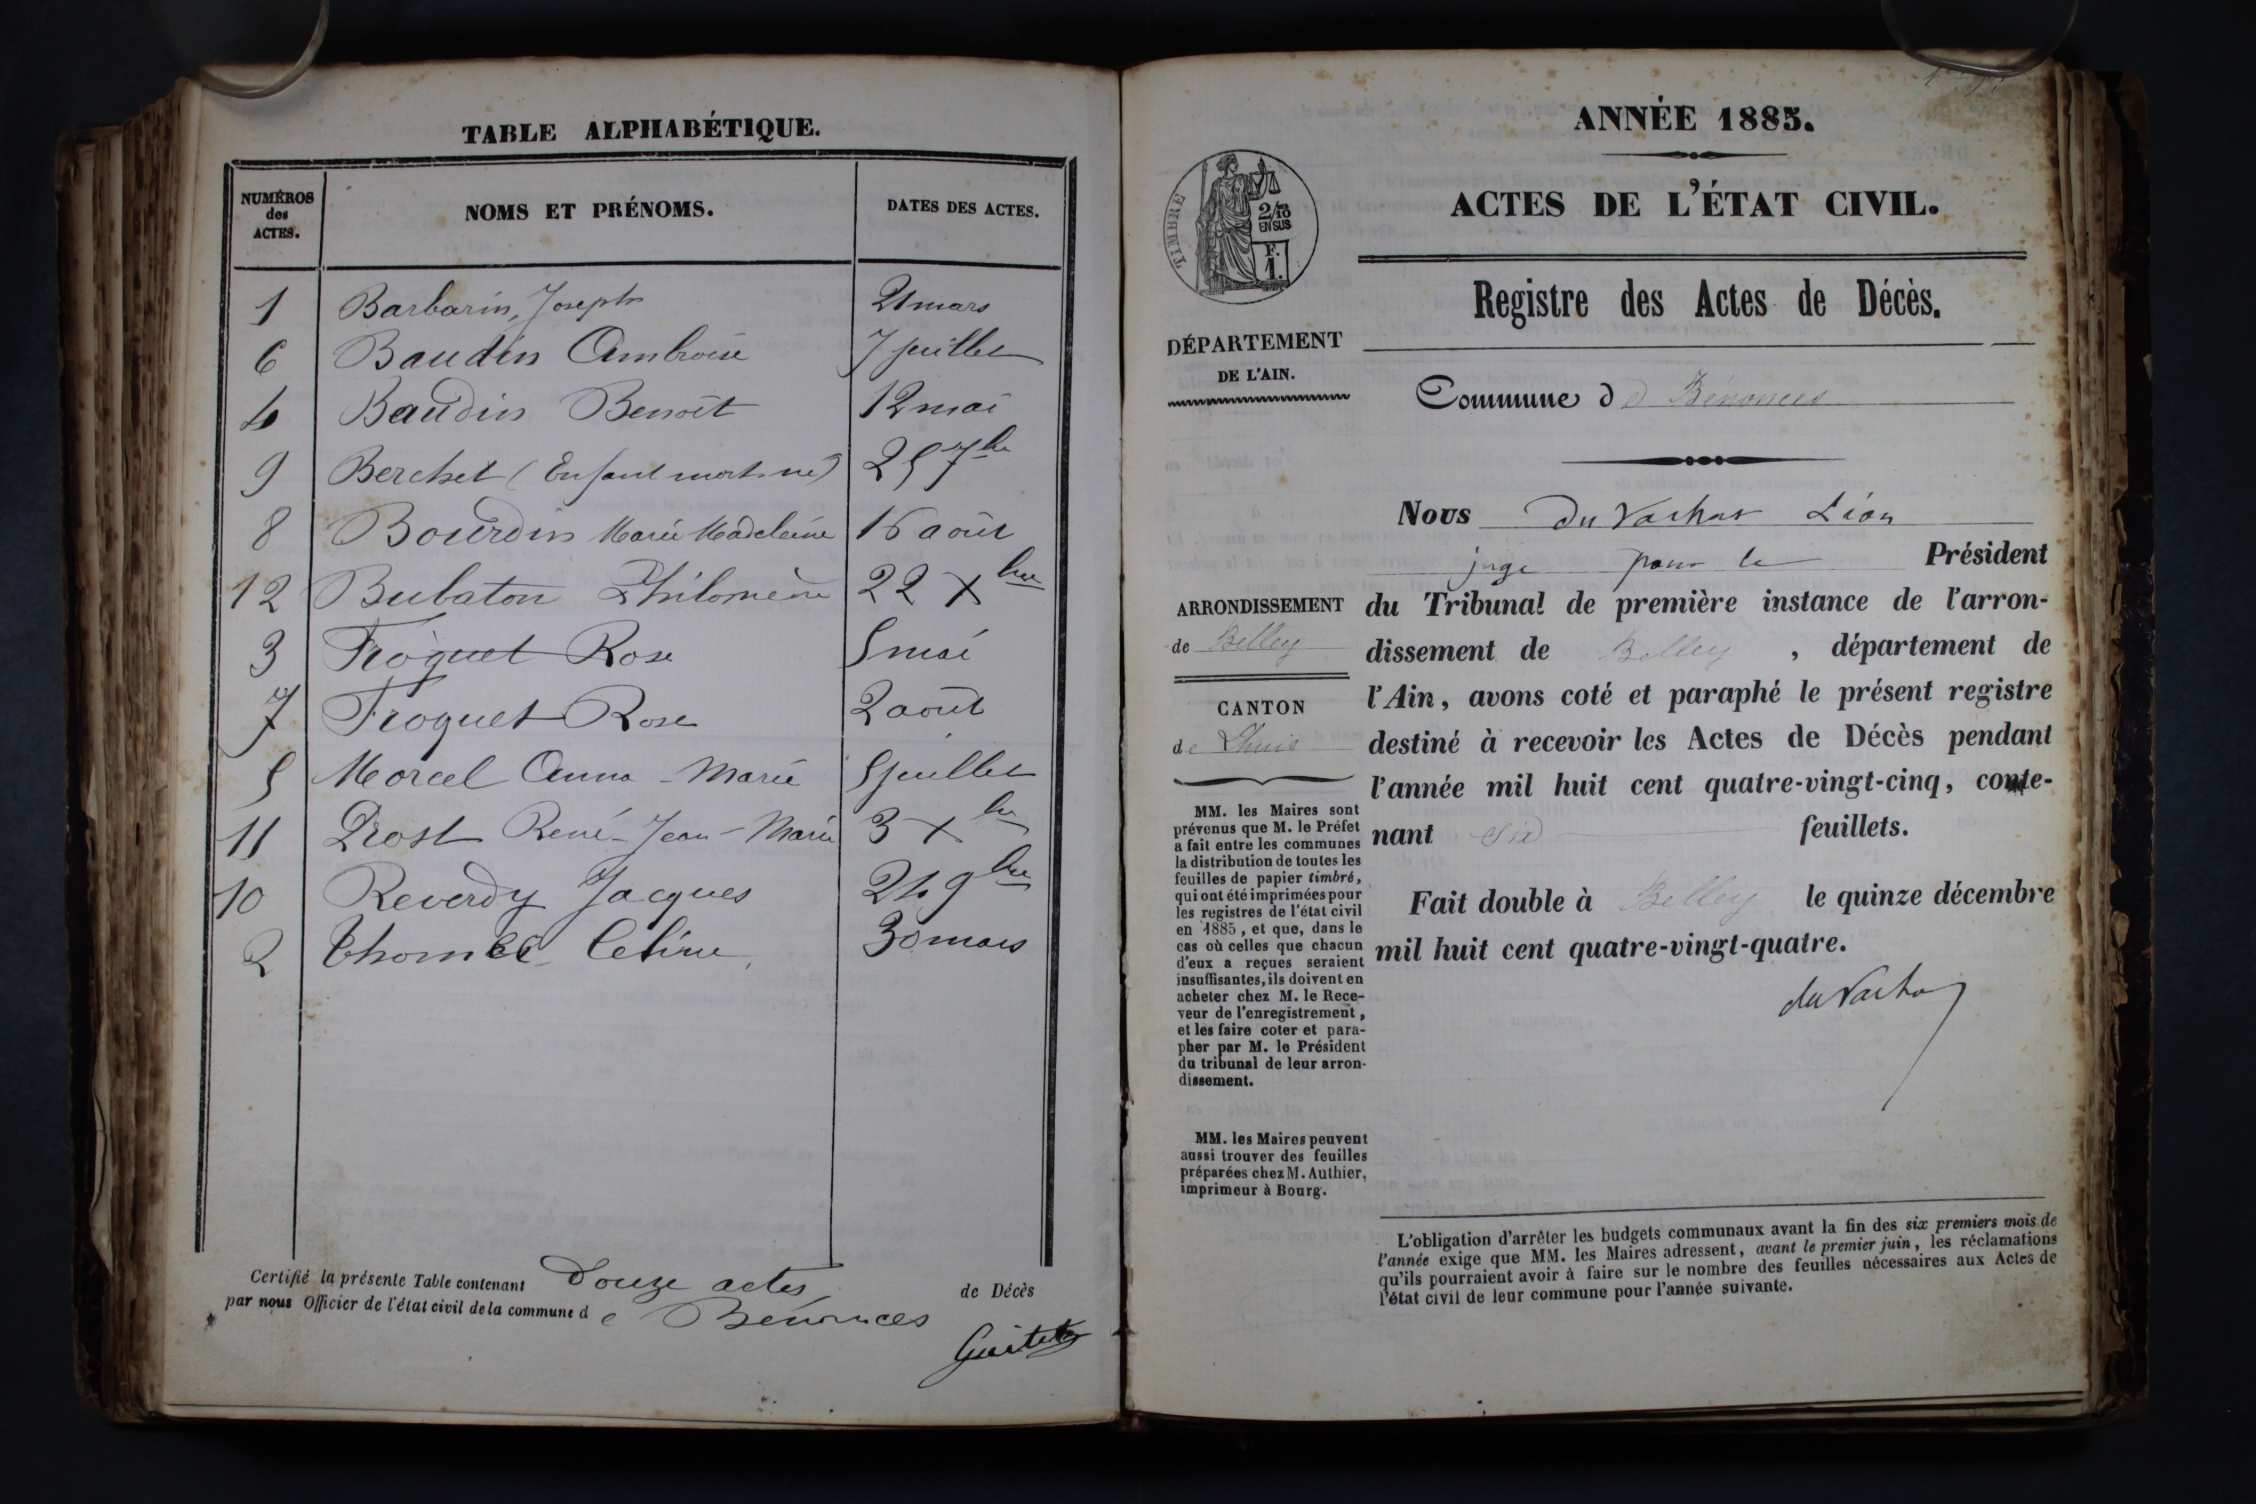 TABLE ALPHABÉTIQUE.
NUMÉROS des ACTES. NOMS ET PRÉNOMS. DATES DES ACTES.
1 Barbarin, Joseph 21 mars
6 Baudin Ambroise 7 juillet
4 Baudin Benoît 12 mai
9 Berchet (Enfant mort-né) 25 7bre
8 Bourdin Marie Madeleine 16 août
12 Bubaton Philomène 22 Xbre
3 Froquet Rose 5 mai
7 Froquet Rose 2 août
5 Morcel Anna-Marie 5 juillet
11 Prost René-Jean-Marie 3 Xbre
10 Reverdy Jacques 24 9bre
2 Thomas Celine 30 mars
Certifié la présente Table contenant Douze actes de Décès
par nous Officier de l'état civil de la commune de Bénonces
ANNÉE 1885.
ACTES DE L'ÉTAT CIVIL.
TIMBRE
2/10
EN SUS
F.
1.
Registre des Actes de Décès.
DÉPARTEMENT
DE L'AIN.
Commune d de Bénonces
Nous du Vachat Léon
juge pour le Président
du Tribunal de première instance de l'arron-
dissement de Belley, département de
l'Ain, avons coté et paraphé le présent registre
destiné à recevoir les Actes de Décès pendant
l'année mil huit cent quatre-vingt-cinq, conte-
nant six feuillets.
Fait double à Belley le quinze décembre
mil huit cent quatre-vingt-quatre.
du Vachat
ARRONDISSEMENT
de Belley
CANTON
de Lhuis
MM. les Maires sont
prévenus que M. le Préfet
a fait entre les communes
la distribution de toutes les
feuilles de papier timbré,
qui ont été imprimées pour
les registres de l'état civil
en 1885, et que, dans le
cas où celles que chacun
d'eux a reçues seraient
insuffisantes, ils doivent en
acheter chez M. le Rece-
veur de l'enregistrement,
et les faire coter et para-
pher par M. le Président
du tribunal de leur arron-
dissement.
MM. les Maires peuvent
aussi trouver des feuilles
préparées chez M. Authier,
imprimeur à Bourg.
L'obligation d'arrêter les budgets communaux avant la fin des six premiers mois de
l'année exige que MM. les Maires adressent, avant le premier juin, les réclamations
qu'ils pourraient avoir à faire sur le nombre des feuilles nécessaires aux Actes de
l'état civil de leur commune pour l'année suivante.